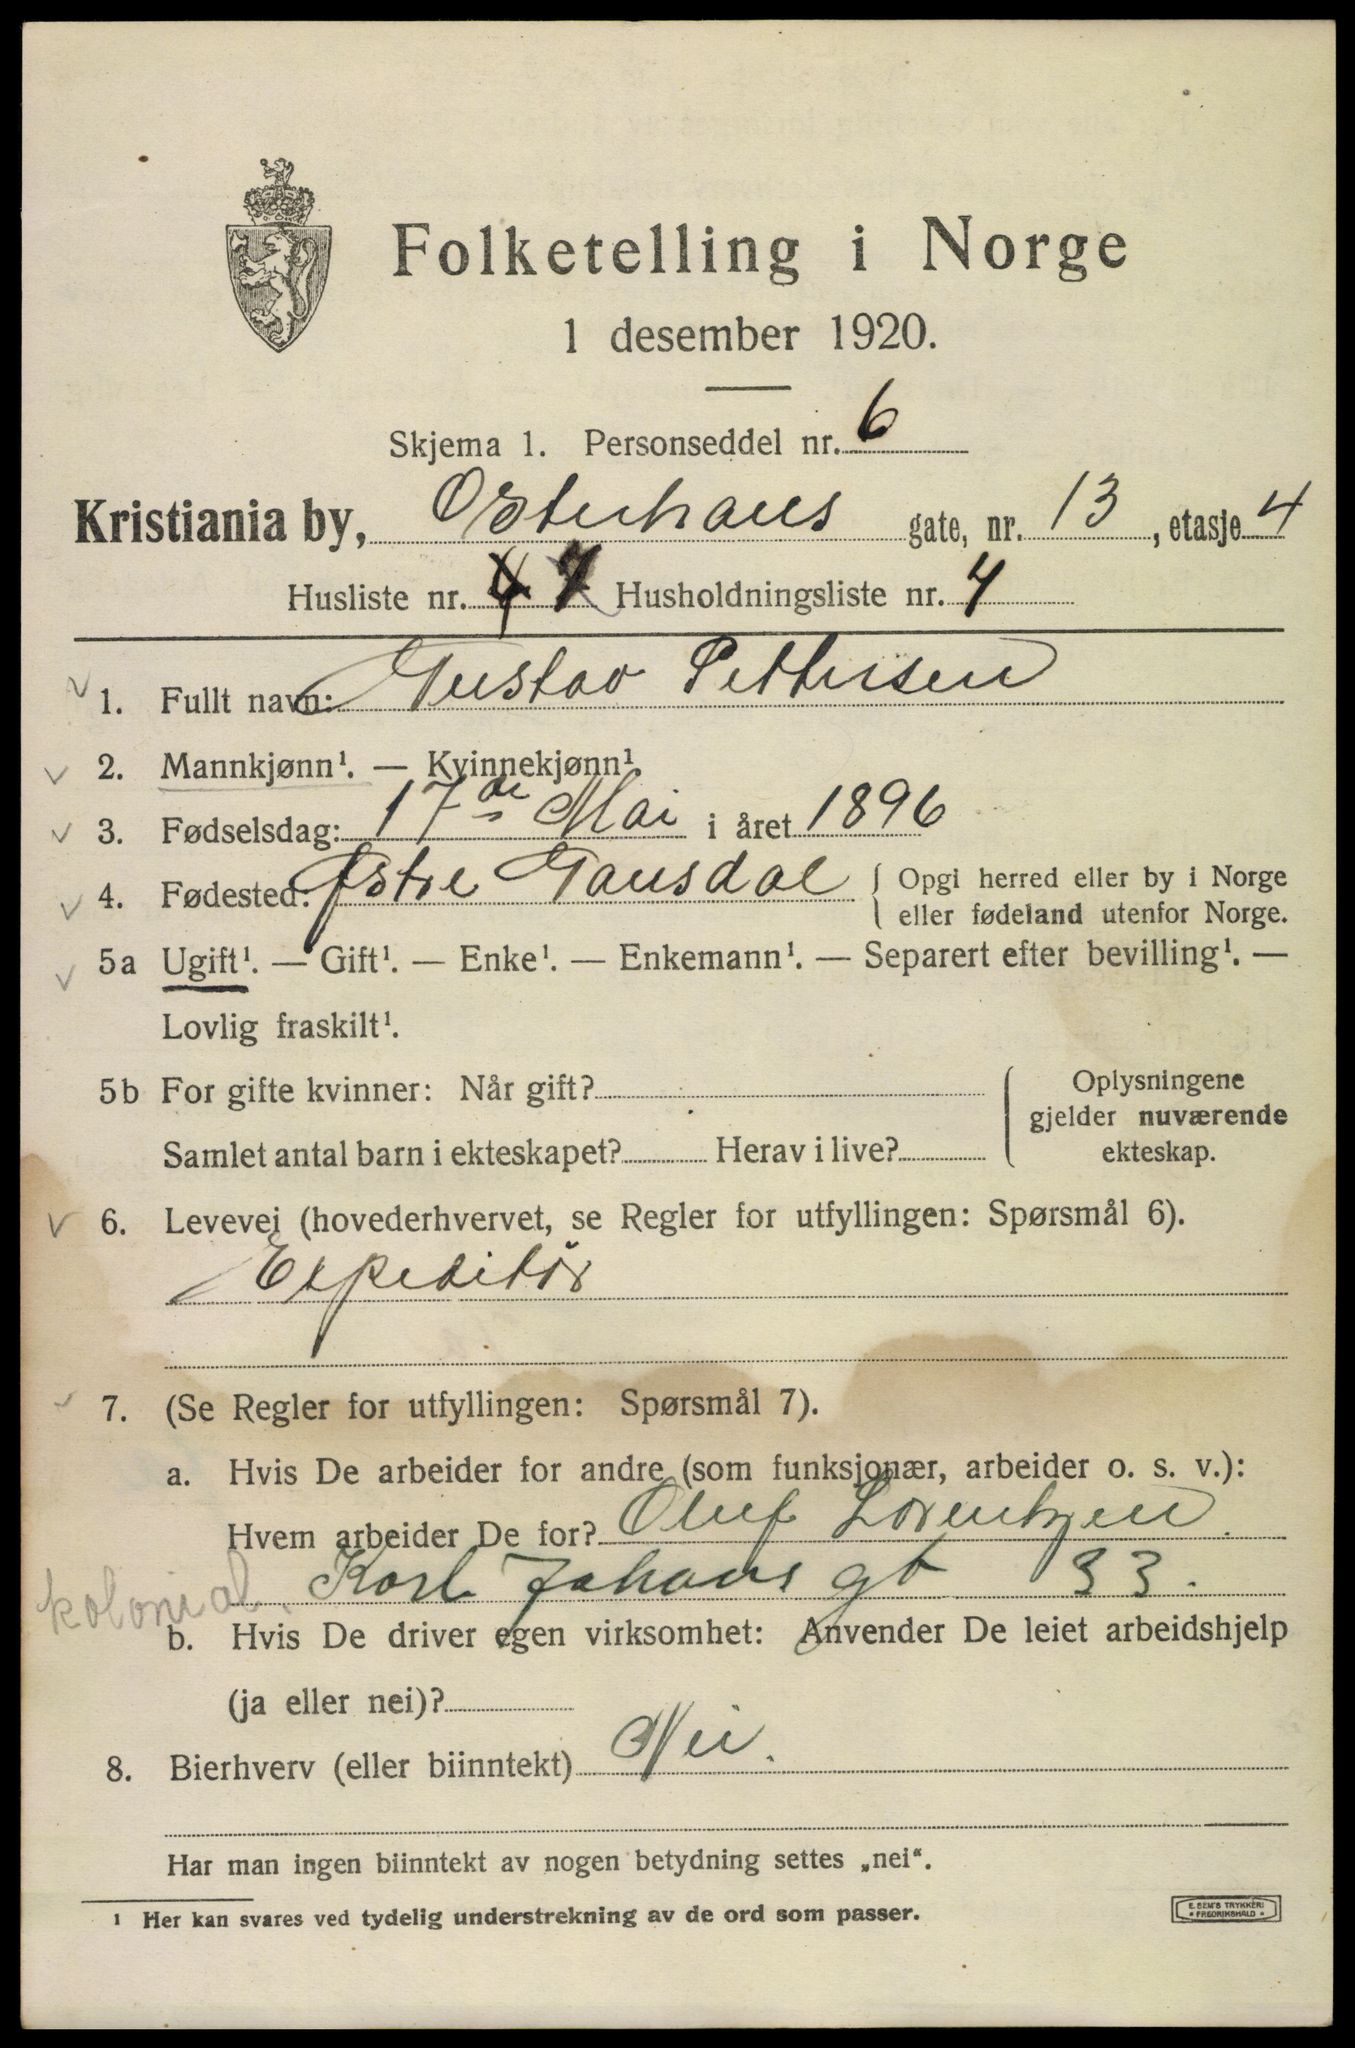 Folketelling i Norge
1 desember 1920.
Skjema 1. Personseddel nr. 6
Kristiania by, Osterhaus gate, nr. 13, etasje 4
Husliste nr. 4 7 Husholdningsliste nr. 4
1. Fullt navn: Gustav Pettersen
2. Mannkjønn¹. — Kvinnekjønn¹.
3. Fødselsdag: 17de Mai i året 1896
4. Fødested: Østre Gausdal { Opgi herred eller by i Norge
eller fødeland utenfor Norge.
5a Ugift¹. — Gift¹. — Enke¹. — Enkemann¹. — Separert efter bevilling¹. —
Lovlig fraskilt¹.
5b For gifte kvinner: Når gift?
Samlet antal barn i ekteskapet? Herav i live?
Oplysningene
gjelder nuværende
ekteskap.
6. Levevei (hovederhvervet, se Regler for utfyllingen: Spørsmål 6).
Expeditør
7. (Se Regler for utfyllingen: Spørsmål 7).
a. Hvis De arbeider for andre (som funksjonær, arbeider o. s. v.):
Hvem arbeider De for? Oluf Lorentzen.
kolonial. Karl Johans gt 33.
b. Hvis De driver egen virksomhet: Anvender De leiet arbeidshjelp
(ja eller nei)?
8. Bierhverv (eller biinntekt) Nei.
Har man ingen biinntekt av nogen betydning settes „nei“.
¹ Her kan svares ved tydelig understrekning av de ord som passer.
E. SEM'S TRYKKERI
* FREDRIKSHALD *